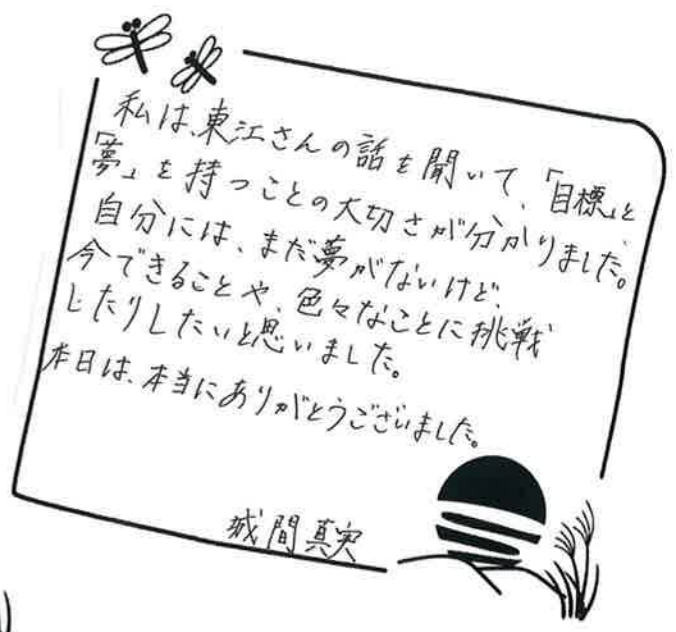 私は、東江さんの話を聞いて、「目標」と
「夢」を持つことの大切さが分かりました。
自分には、まだ夢がないけど、
今できることや、色々なことに挑戦
したりしたいと思いました。
本日は、本当にありがとうございました。
城間真実